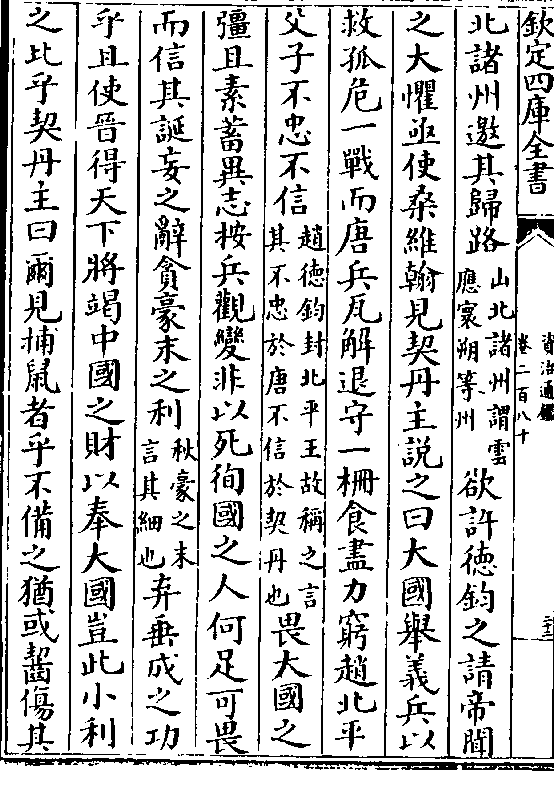 欽定四庫全書
資治通鑑
卷二百八十
北諸州邀其歸路山北諸州謂雲應寰朔等州欲許德鈞之請帝聞
之大懼亟使桑維翰見契丹主說之曰大國舉義兵以
救孤危一戰而唐兵瓦解退守一柵食盡力窮趙北平
父子不忠不信趙德鈞封北平王故稱之言其不忠於唐不信於契丹也畏大國之
彊且素蓄異志按兵觀變非以死徇國之人何足可畏
而信其誕妄之辭貪豪末之利秋豪之末言其細也弃垂成之功
乎且使晉得天下將竭中國之財以奉大國豈此小利
之比乎契丹主曰爾見捕鼠者乎不備之猶或齧傷其